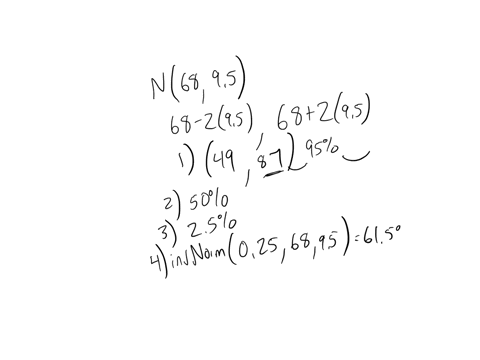 N(68, 9.5)
68-2(9.5), 68+2(9.5)
1) (49, 87) 95%
2) 50%
3) 2.5%
4) invNorm(0.25, 68, 9.5) = 61.5°